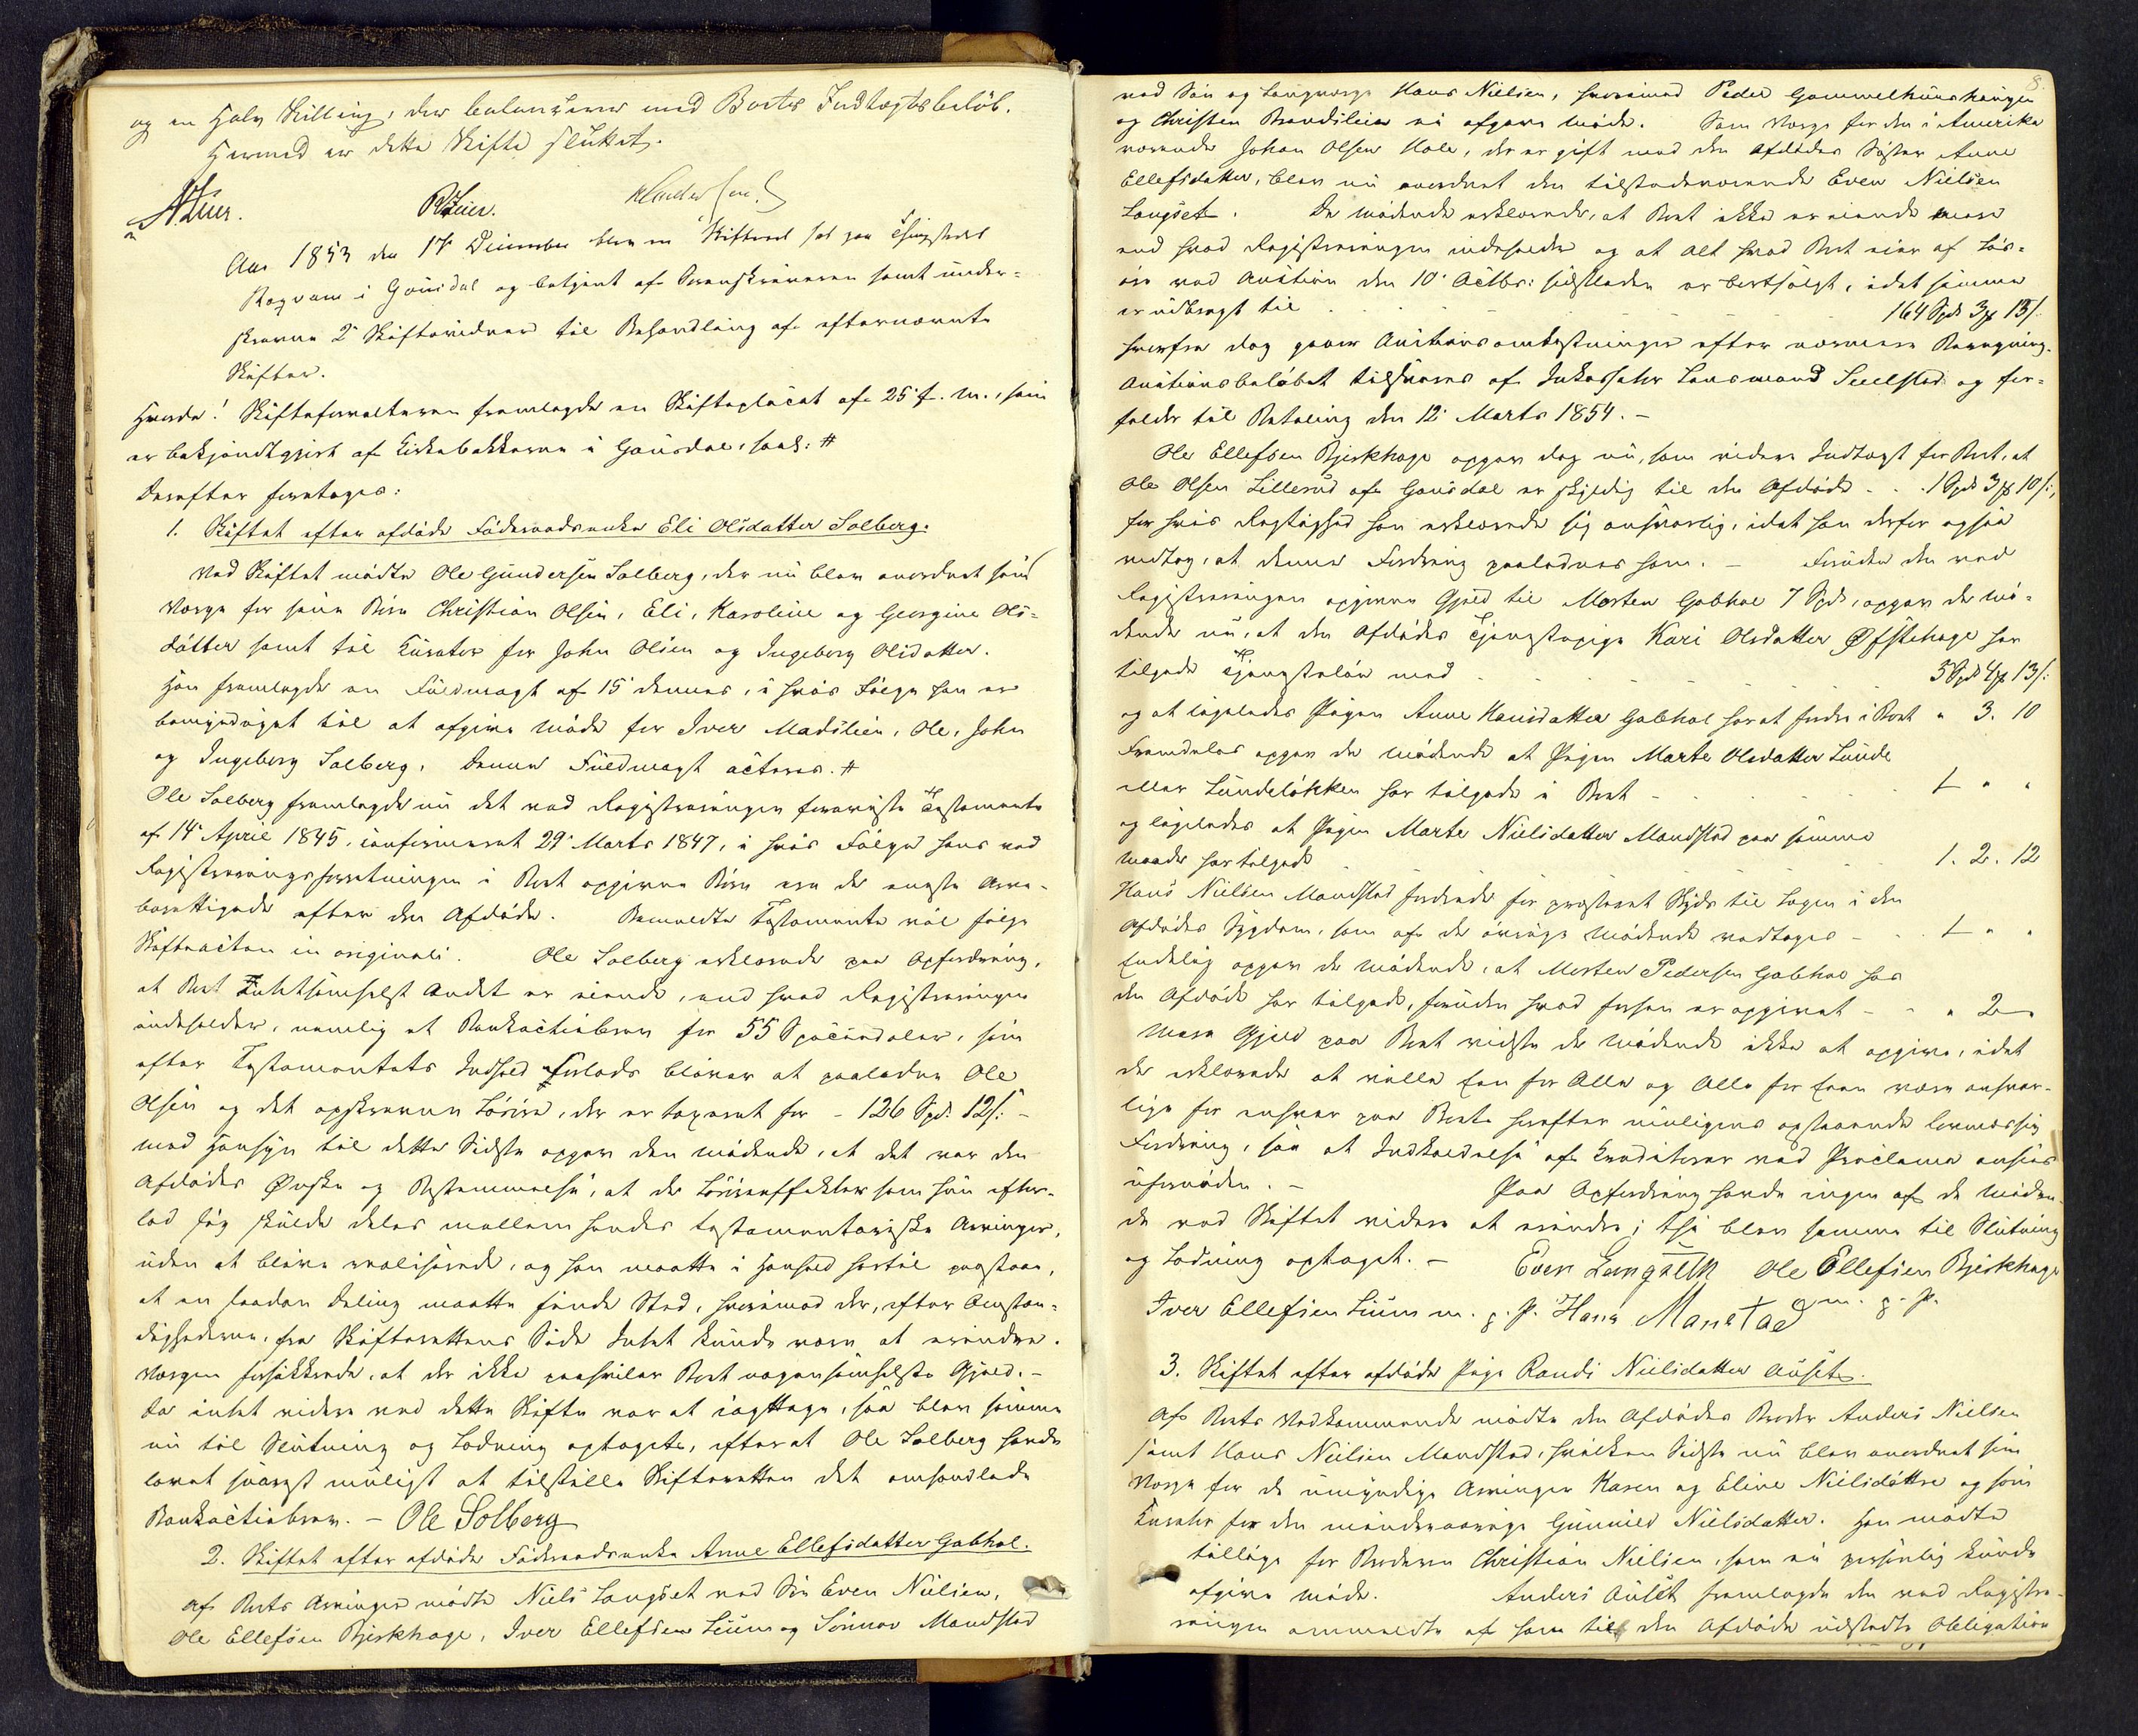 og en halv Skilling, der balancerer med Boets Indtægtsbeløb.
Hermed er dette Skifte sluttet.
Aar 1853 den 17 December blev en Skifteret sat paa Thingstedet
Rogvam i Gausdal og betjent af Sorenskriveren samt under-
skrevne 2 Skiftevidner til Behandling af efternævnte
Skifter.
Hvorda! Skifteforvalteren fremlagde en Skifteplacat af 25 f. M., som
er bekjendtgjort af Kirkebakkerne i Gausdal, saal: #
Derefter foretoges:
1. Skiftet efter afdøde Føderaadsenke Eli Olsdatter Solberg.
Ved Skiftet mødte Ole Gundersen Solberg, der nu blev anordnet som
Værge for sine Børn Christian Olsen, Eli, Karoline og Georgine Ols-
døtter samt til Curator for John Olsen og Ingeborg Olsdatter.
Han fremlagde en Fuldmagt af 15 dennes, i hvis Følge han er
bemyndiget til at afgive Møde for Iver Madslien, Ole, John
og Ingeborg Solberg. Denne Fuldmagt acteres. #
Ole Solberg fremlagde nu det ved Registreringen foreviste Testamente
af 14 April 1845, confirmeret 29 Marts 1847, i hvis Følge hans ved
Registreringsforretningen i Boet opgivne Børn ere de eneste Arve-
berettigede efter den Afdøde. Bemeldte Testamente vil følge
Skifteacten in originali. Ole Solberg erklærede paa Opfordring,
at Boet Intetsomhelst Andet er eiende, end hvad Registreringen
indeholder, nemlig et Bankactiebrev for 55 Speciedaler, som
efter Testamentets Indhold forlods bliver at paalodne Ole
Olsen og det opskrevne Løsøre, der er taxeret for - 126 Spd. 12 s: -
med Hensyn til dette Sidste opgav den mødende, at det var den
Afdødes Ønske og Bestemmelse, at de Løsøreeffekter som hun efter-
lod sig skulde deles mellem hendes testamentariske Arvinger,
uden at blive realiserede, og han maatte i Henhold hertil paastaae,
at en saadan Deling maatte finde Sted, hvorimod der, efter Omstæn-
dighederne, fra Skifterettens Side Intet kunde være at erindre.
Værgen forsikkrede, at der ikke paahviler Boet nogensomhelst Gjæld. -
Da intet videre ved dette Skifte var at iagttage, saa blev samme
nu til Slutning og Lodning optaget, efterat Ole Solberg havde
lovet snarest muligst at tilstille Skifteretten det omhandlede
Bankactiebrev. - Ole Solberg
2. Skiftet efter afdøde Føderaadsenke Anne Ellefsdatter Gobhol.
Af Boets Arvinger mødte Niels Langset ved Søn Even Nielsen,
Ole Ellefsen Bjerkhage, Iver Ellefsen Liium og Sønnov Mandstad
8.
ved Søn og Laugværge Hans Nielsen, hvorimod Peder Gammelhuushaugen
og Christen Brandslien ei afgave Møde. Som Værge for den i Amerika
værende Johan Olsen Hole, der er gift med den Afdødes Søster Anne
Ellefsdatter, blev nu anordnet den tilstedeværende Even Nielsen
Langset. De mødende erklærede, at Boet ikke er eiende mere
end hvad Registreringen indeholder og at alt hvad Boet eier af Løs-
øre ved Auction den 10 Octbr: sidstleden er bortsolgt, idet samme
er udbragt til 164 Spd 3 # 15 s.
hvorfra dog gaaer Auctionsomkostninger efter nærmere Beregning.
Auctionsbeløbet tilsvares af Incassator Lensmand Seielstad og for-
falder til Betaling den 12 Marts 1854. -
Ole Ellefsen Bjerkhage opgav dog nu, som videre Indtægt for Boet, at
Ole Olsen Lillerud af Gausdal er skyldig til den Afdøde . . . 1 Spd 3 # 10 s:,
for hvis Rigtighed han erklærede sig ansvarlig, idet han derfor ogsaa
vedtog, at denne Fordring paalodnes ham. - Foruden den ved
Registreringen opgivne Gjæld til Morten Gobhol 7 Spd., opgav de mø-
dende nu, at den Afdødes Tjenestepige Kari Olsdatter Øfstehage har
tilgode Tjenesteløn med 5 Spd 4 # 13 s:
og at ligeledes Pigen Anne Hansdatter Gobhol har at fordre i Boet " 3. 10
Fremdeles opgav de mødende at Pigen Marte Olsdatter Lunde
eller Lundeløkken har tilgode i Boet - 1 " "
og ligeledes at Pigen Marte Nielsdatter Mandstad paa samme
Maade har tilgode 1. 2. 12
Hans Nielsen Mandstad fordrede for præsteret Skyds til Lægen i den
Afdødes Sygdom, som af de øvrige Mødende vedtoges - 1 " "
Endelig opgav de Mødende, at Morten Pedersen Gobhol hos
den Afdøde har tilgode, foruden hvad forhen er opgivet - " 2 "
Mere Gjæld paa Boet vidste de Mødende ikke at opgive, idet
de erklærede at ville Een for Alle og Alle for Een være ansvar-
lige for enhver paa Boets herefter muligens opstaaende lovmæssig
Fordring, saa at Indkaldelse af Creditorer ved Proclama ansees
ufornøden. - Paa Opfordring havde ingen af de Møden-
de ved Skiftet videre at erindre; thi blev samme til Slutning
og Lodning optaget. - Even Langseth Ole Ellefsen Bjerkhage
Iver Ellefsen Liium m. p. P. Hans Manstad m. p. P.
3. Skiftet efter afdøde Pige Randi Nielsdatter Aulset.
Af Boets Vedkommende mødte den Afdødes Broder Anders Nielsen
samt Hans Nielsen Mandstad, hvilken Sidste nu blev anordnet som
Værge for de umyndige Arvinger Karen og Eline Nielsdøttre og som
Curator for den mindreaarige Gunnild Nielsdatter. Han mødte
tillige for Broderen Christian Nielsen, som ei personlig kunde
afgive Møde. Anders Aulset fremlagde den ved Registre-
ringen ommeldte af ham til den Afdøde udstedte Obligation